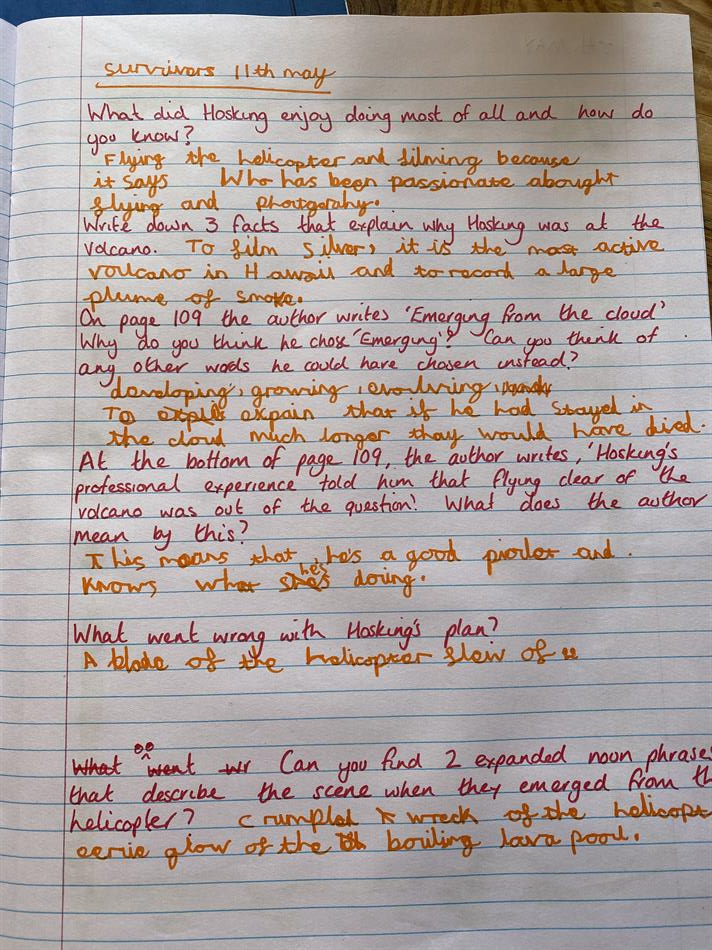 survivors 11th may
What did Hosking enjoy doing most of all and how do
you know?
Flying the helicopter and filming because
it says Who has been passionate abought
flying and photgorahy.
Write down 3 facts that explain why Hosking was at the
volcano. To film Silver, it is the most active
voulcano in Hawaii and to record a large
plume of smoke.
On page 109 the author writes 'Emerging from the cloud'
Why do you think he chose 'Emerging'? Can you think of
any other words he could have chosen instead?
developing, growing, evolving,
To expain that if he had stayed in
the cloud much longer thay would have died.
At the bottom of page 109, the author writes, 'Hosking's
professional experience told him that flying clear of the
volcano was out of the question'. What does the author
mean by this?
This means that, he's a good piorlet and
knows what he's doing.
What went wrong with Hosking's plan?
A blade of the helicopter flew of
What went wr Can you find 2 expanded noun phrases
that describe the scene when they emerged from th
helicopter? crumpled wreck of the helicopt
eerie glow of the bouiling lava pool.